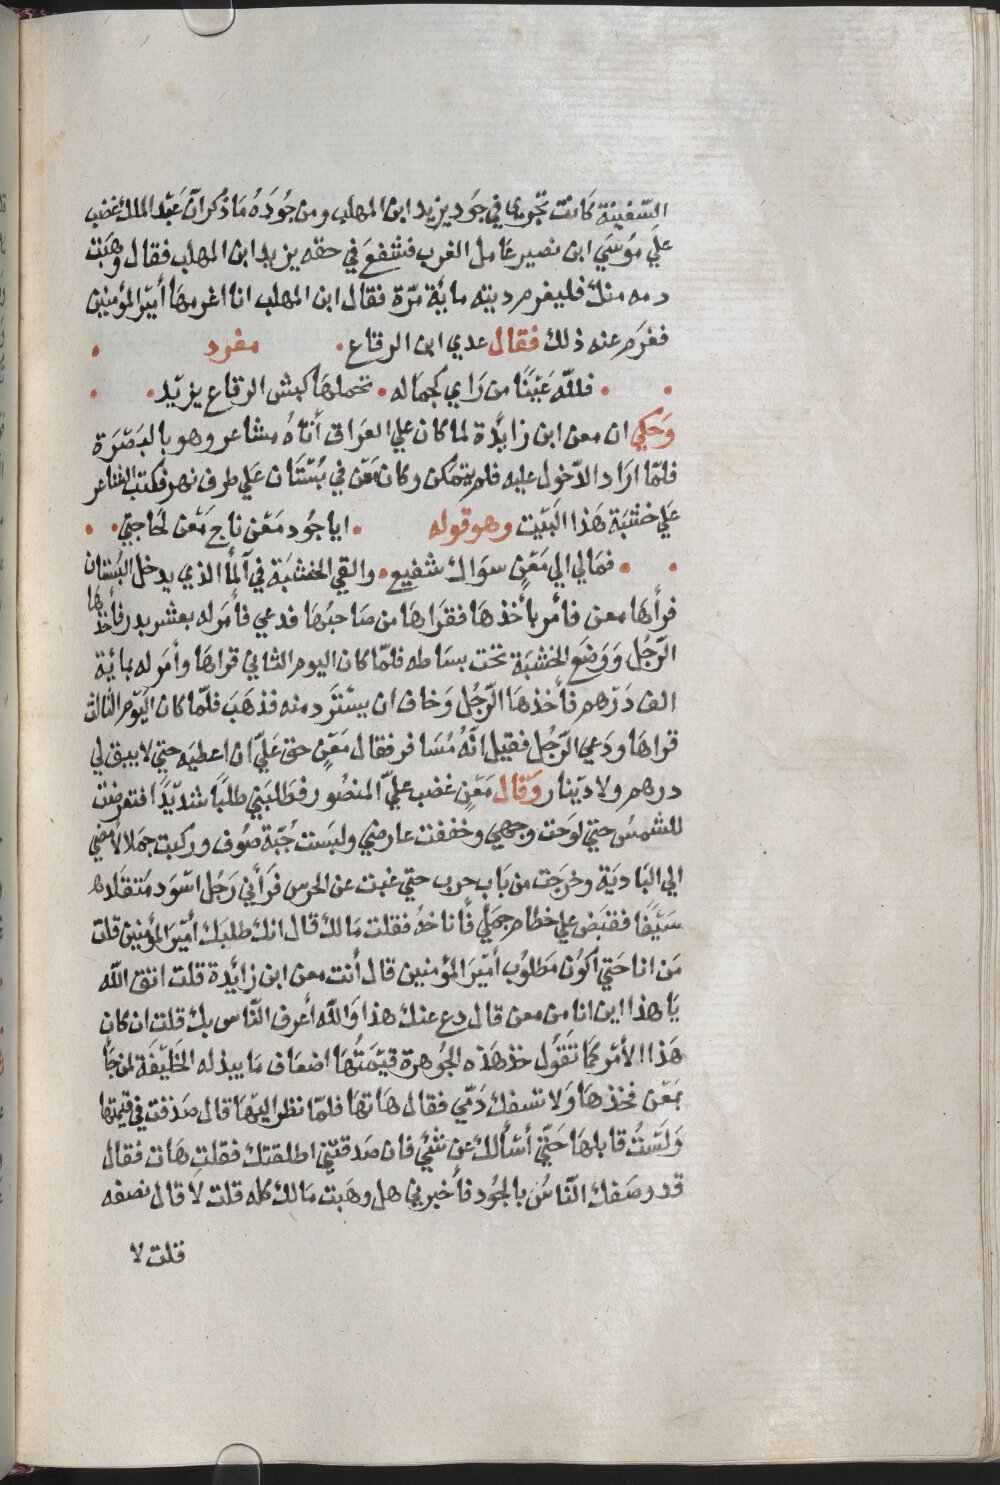 السّفينة كانت تجري في جُود يزيد ابن المهلب ومن جُوده مَا ذُكر انّ عَبْد الملك غضب
علَي مُوسَي ابن نصير عَامل الغرب فشفعَ في حقه يزيد ابن المهلب فقال وهَبْت
دمه منك فليغرم ديته مايةَ مرّة فقال ابن المهلب انا اغرمهَا أميْر المؤمنين
فغرَم عنه ذلك فقال عدي ابن الرقاع . مفرد .
. فللّه عَيْنًا من رَاي كجمَاله . تحملهَا كبش الرقاع يزيْد .
وَحكي ان معن ابن زايدَة لما كان علي العرَاق أتاهُ شاعر وهو بالبَصْرَة
فلمّا ارَاد الدّخول عليه فلم يتمكن وكان مَعْن في بُسْتَان عَلي طرف نهر فكتب الشاعر
عَلي خشبَة هَذا البَيْت وهو قوله . ايا جُود مَعْن ناج مَعْن لحَاجتي .
. فمَالي الي مَعْنٍ سوَاك شفيع . والقي الخشبَة في آلمأ الذي يدخل البُسْتان
فرأهَا معن فأمر بأخذهَا فقرَاهَا من صَاحبُهَا فدعي فأمَر له بعشر بدر فأخذهَا
الرّجُل وَوَضع الخشبَة تحت بسَاطه فلمّا كان اليوم الثاني قراهَا وأمَر له بمايَة
الف دَرْهم فأخذهَا الرّجُل وَخاف ان يسْترَد منه فذهَبَ فلمّا كان اليَوْم الثالث
قراهَا ودَعي الرّجُل فقيل انّهُ مُسَافر فقال مَعْنٍ حق عَليّ ان اعطيَه حتي لا يبق لي
درهم ولا ديْنار وَقال مَعْنٍ غضب عليّ المنصُور فطالبَني طلبًا شديْدًا فتعرضت
للشمسُ حتي لوَحت وجهي وخففت عارضي ولبسَت جُبّة صُوف وركبت جمَلا لامضي
الي البَاديَة وخرَجت من بَاب حرب حتي غبت عن الحرس فرَأني رَجُل اسْوَد متقلدم
سَيْفًا فقبَض علي خطام جمَلي فأناخهُ فقلت مَالك قال انك طلبَك أميْر المؤمنين قلت
مَن انا حَتي أكوُن مَطلوُب أميْرَ المؤمنين قال أنت معن ابن زايْدة قلت اتق اللّه
يَا هَذا اين انا من معن قال دع عنك هذا وَاللّه أعرف النّاس بك قلت ان كان
هَذا الأمْر كما تَقُول خذ هَذه الجُوهرة قيْمَتُهَا اضعَاف مَا يبذله الخَليْفَة لمن جَأ
بمَعْن فخذهَا وَلا تسفك دَمّي فقال هَاتهَا فلمّا نظر اليْهَا قال صَدقت في قيمتها
وَلَسْتُ قابلهَا حَتّي أسْألك عن شيْ فان صَدقتني اطلقتك فقلت هَات فقال
قد وصَفك النّاسُ بالجُود فأخبرني هل وهَبت مَالك كله قلت لا قال نصفه
قلت لا